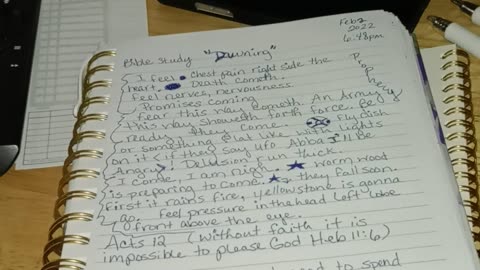 Feb 2
2022
6:48pm
Bible Study "Dawning"
Prophecy
I feel chest pain right side the
heart. Death cometh.
feel nerves, nervousness
Promises coming
fear this way cometh. An Army
this way showeth forth force. Be
ready they come. Fly dish
or something oval like with lights
on it < if they say UFO Abba I'll Be
Angry > ! Delusion fun tuck
I come, I am nigh. Worm wood
is preparing to come. they fall soon.
First it rains fire, yellowstone is gonna
go. Feel pressure in the head left lobe
front above the eye.
Acts 12 (Without faith it is
impossible to please God Heb 11:6)
need to spend